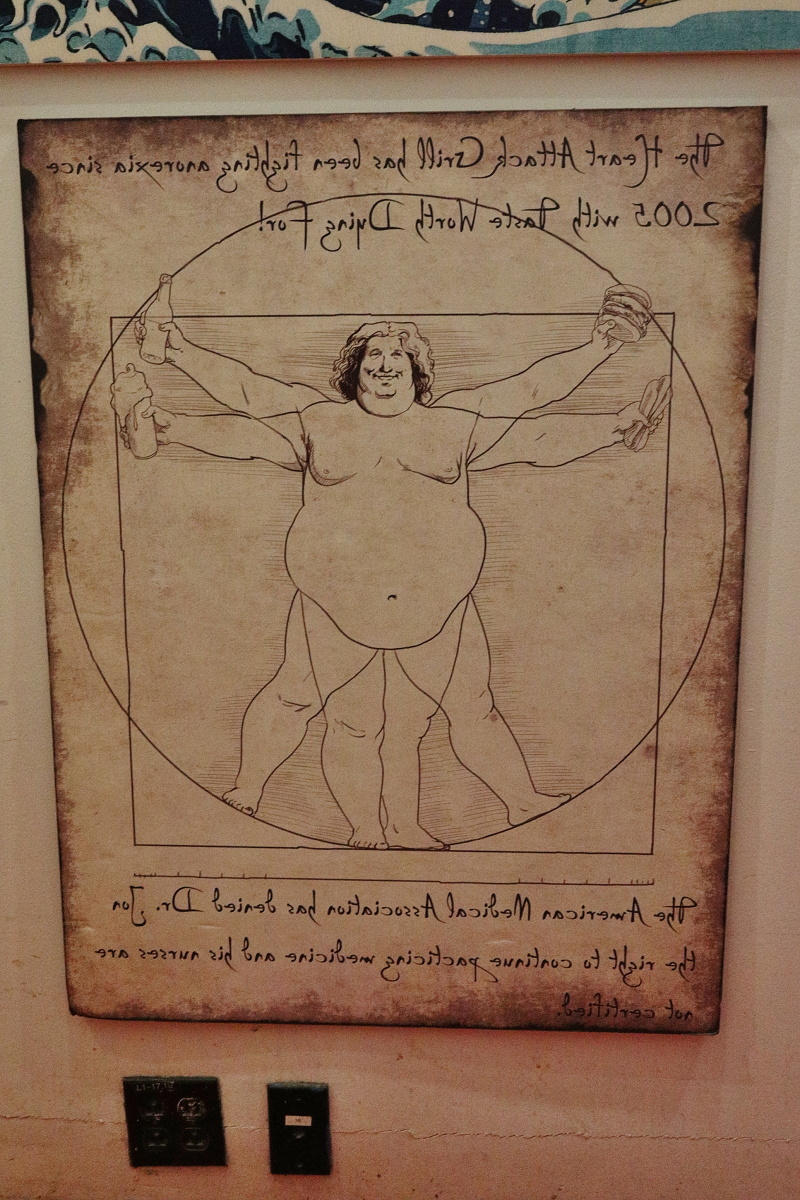 The Heart Attack Grill has been fighting anorexia since
2005 with Taste Worth Dying For!
The American Medical Association has denied Dr. Jon
the right to continue practicing medicine and his nurses are
not certified.
L1-17,19